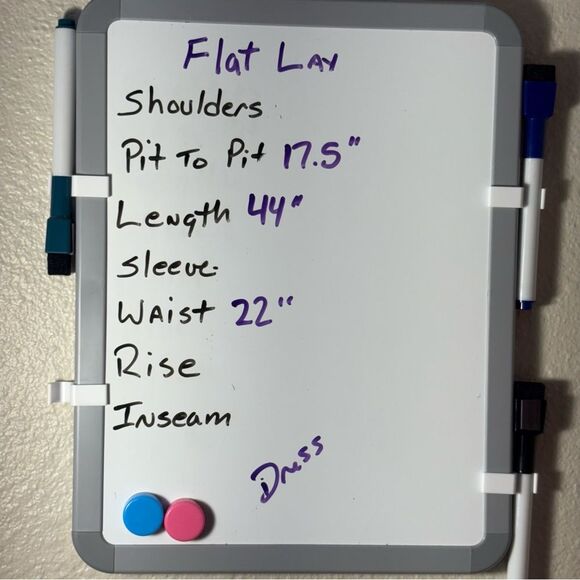 Flat Lay
Shoulders
Pit To Pit 17.5"
Length 44"
Sleeve
Waist 22"
Rise
Inseam
Dress